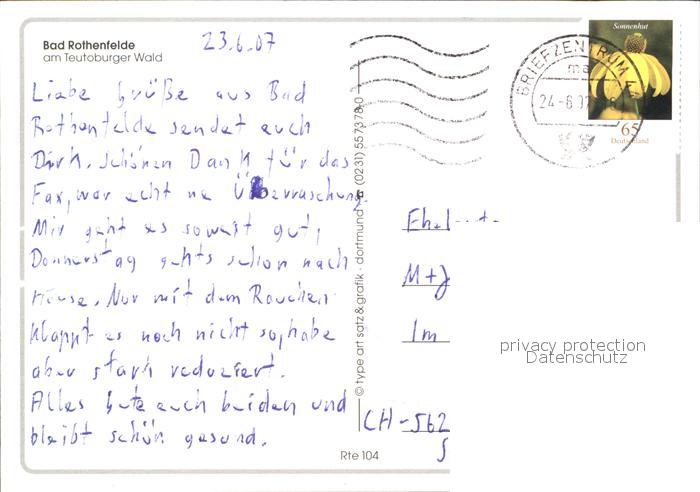 23.6.07
Sonnenhut
Bad Rothenfelde
am Teutoburger Wald
BRIEFZENTRUM
24-6.07
65
Deutschland
Liebe Grüße aus Bad
Rothenfelde sendet euch
Dirk. Schönen Dank für das
Fax, war echt ne Überraschung.
Mir geht es soweit gut,
Donnerstag gehts schon nach
Hause. Nur mit dem Rauchen
klappt es noch nicht so, habe
aber stark reduziert.
Alles Gute euch beiden und
bleibt schön gesund.
© type art satz & grafik · dortmund (0231) 557378-0
M+J
Im
CH-562
S
privacy protection
Datenschutz
Rte 104